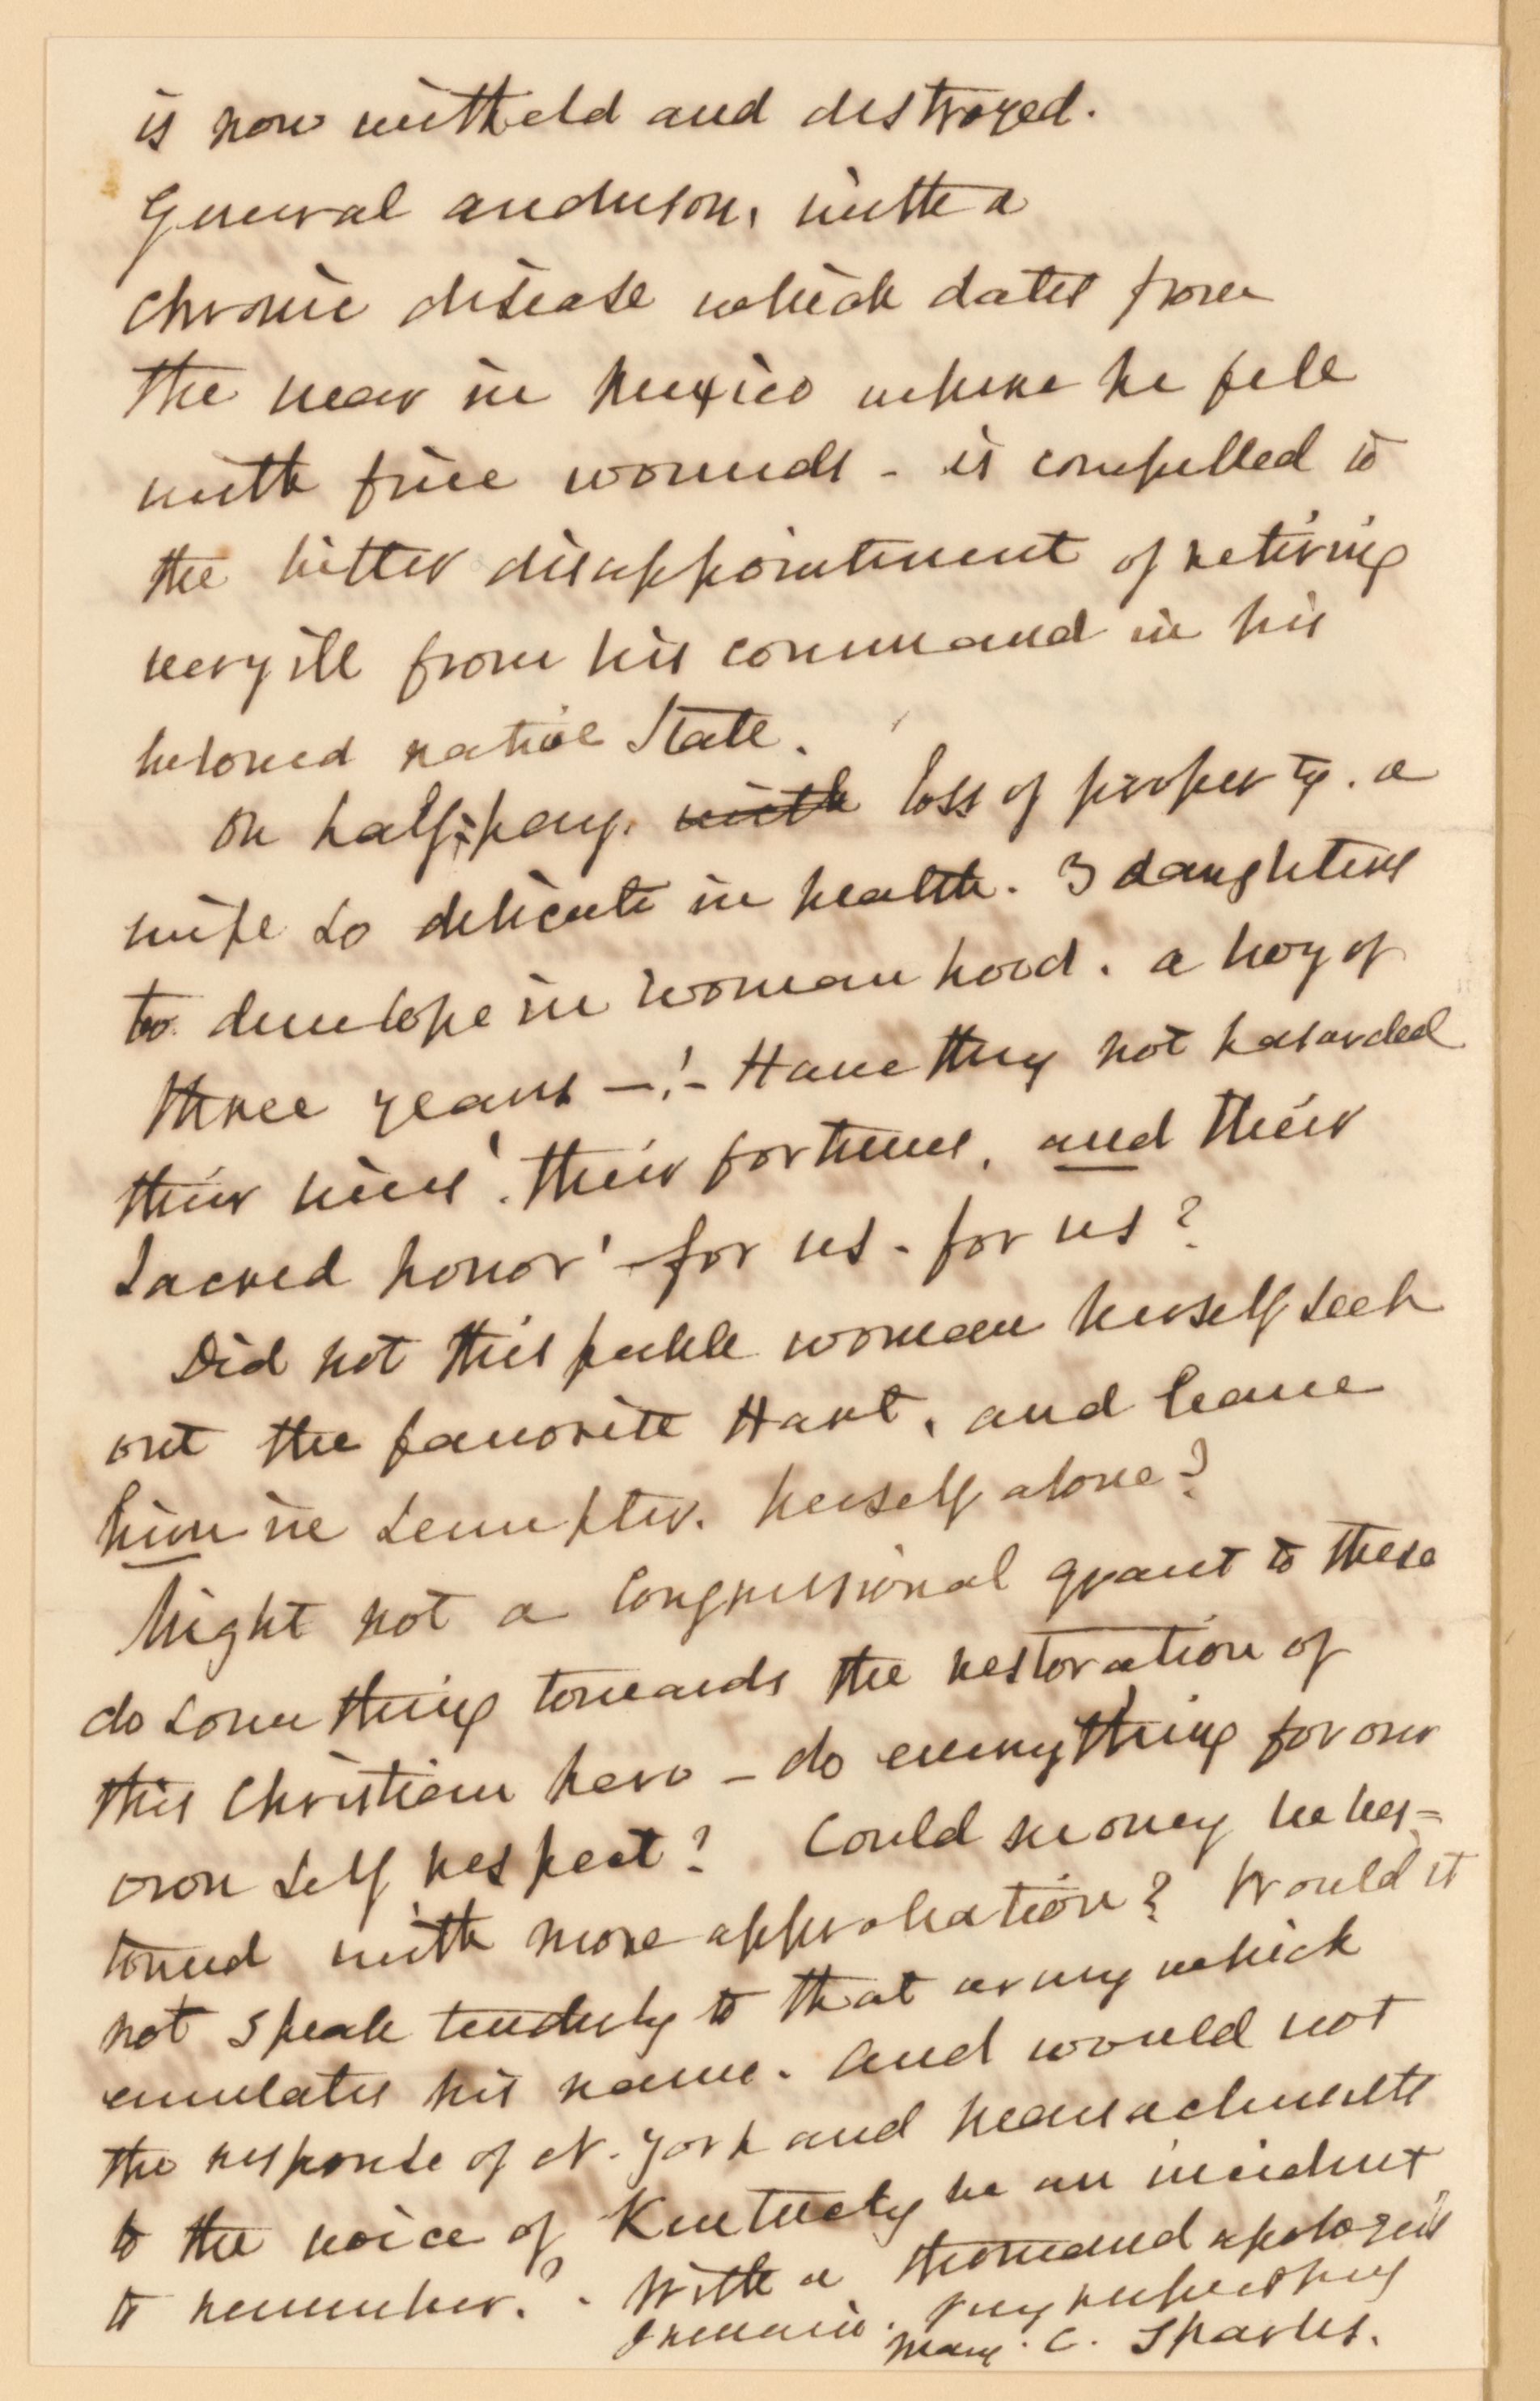 is now witheld and destroyed.
General anderson, with a
chronic disease which dates from
the war in Mexico where he fell
with five wounds - is compelled to
the bitter disappointment of retiring
very ill from his command in his
beloved native State.
On half-pay, with loss of property. a
wife so delicate in health. 3 daughters
to develope in womanhood. a boy of
three years —!- Have they not hasarded
their lives'. their fortunes, and their
sacred honor' - for us - for us?
Did not this feeble woman herself seek
out the favorite Hart, and leave
him in Sumpter. herself alone?
Might not a Congressional grant to these
do something towards the restoration of
this Christian hero - do everything for our
own self respect? Could money be bes=
towed with more approbation? Would it
not speak tenderly to that army which
emulates his name. and would not
the response of N. York and Massachusetts
to the voice of Kentucky be an incident
to remember.? - With a thousand apologies
I remain. Very respectfully
Mary. C. Sparks.